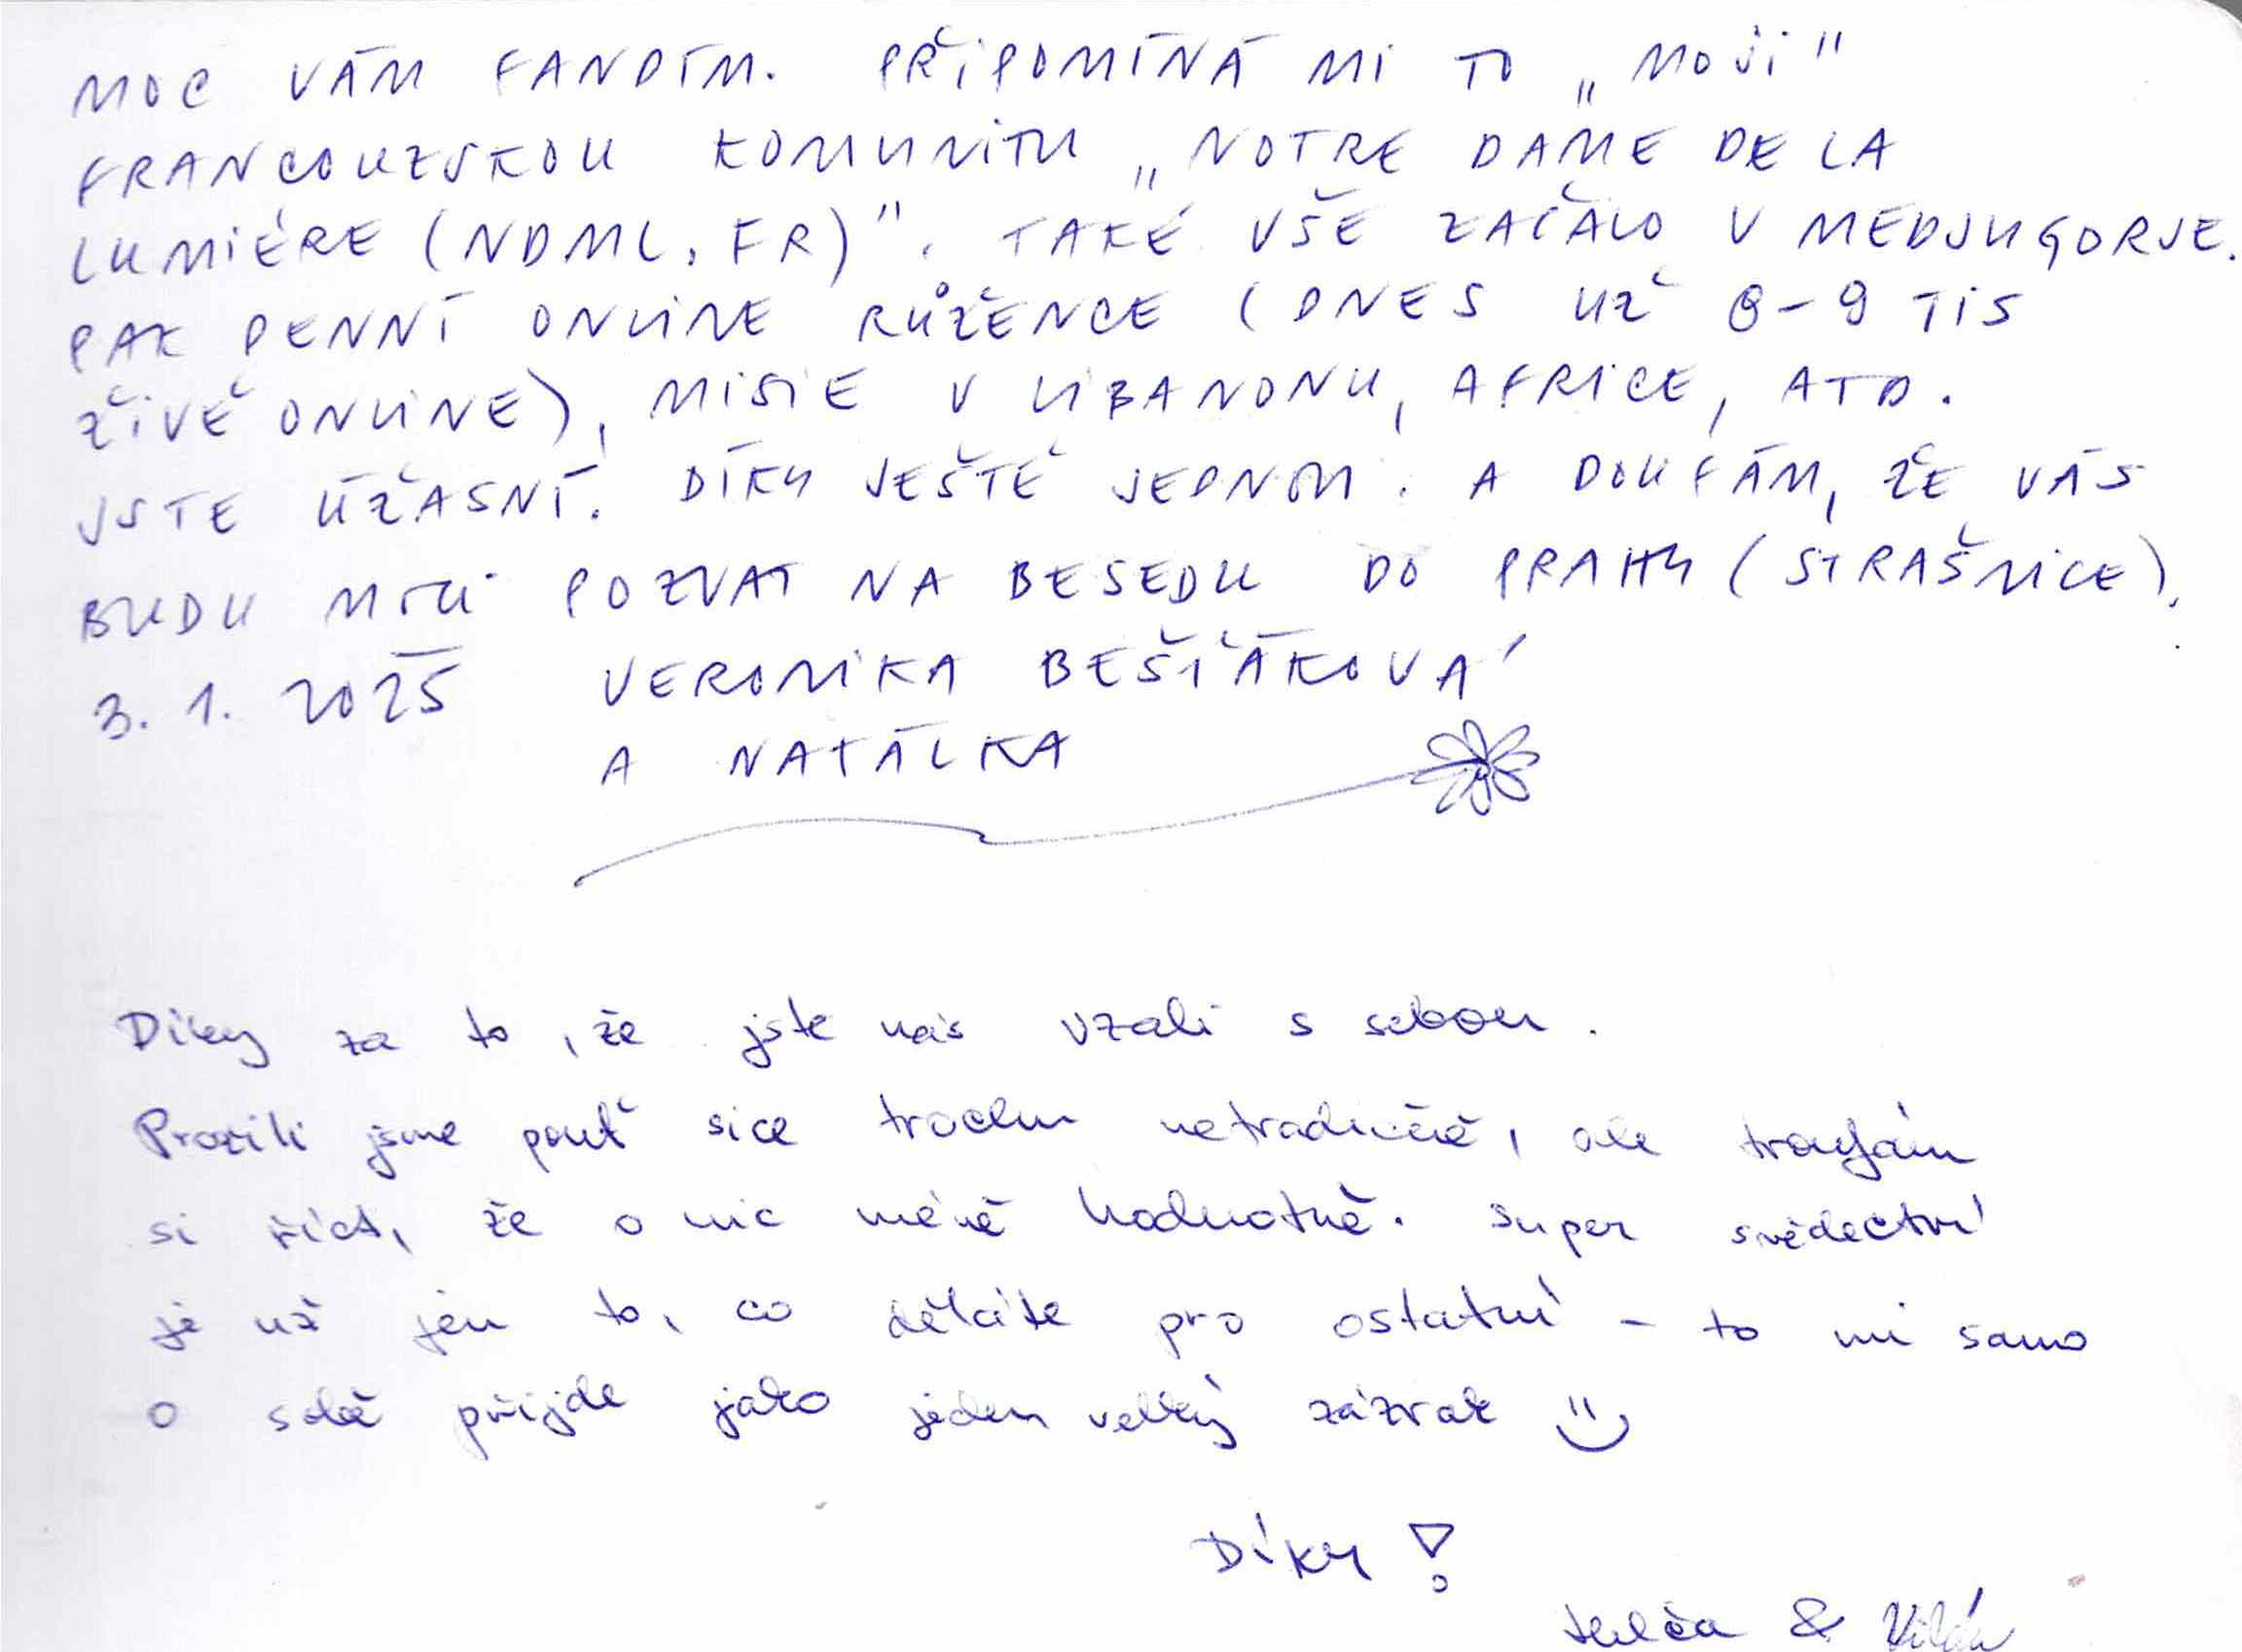 MOC VÁM FANDÍM. PŘIPOMÍNÁ MI TO „MOJI"
FRANCOUZSKOU KOMUNITU „NOTRE DAME DE LA
LUMIÉRE (NDML.FR)". TAKÉ VŠE ZAČALO V MEDJUGORJE.
PAK DENNÍ ONLINE RŮŽENCE (DNES UŽ 8-9 TIS
ŽIVĚ ONLINE), MISIE V LIBANONU, AFRICE, ATD.
JSTE ÚŽASNÍ. DÍKY JEŠTĚ JEDNOU. A DOUFÁM, ŽE VÁS
BUDU MOCI POZVAT NA BESEDU DO PRAHY (STRAŠNICE).
3. 1. 2025 VERONIKA BEŠŤÁKOVÁ
A NATÁLKA
Díky za to, že jste nás vzali s sebou.
Prožili jsme pouť sice trochu netradičně, ale troufám
si říct, že o nic méně hodnotně. Super svědectví
je už jen to, co děláte pro ostatní - to mi samo
o sobě přijde jako jeden velký zázrak
Díky!
&